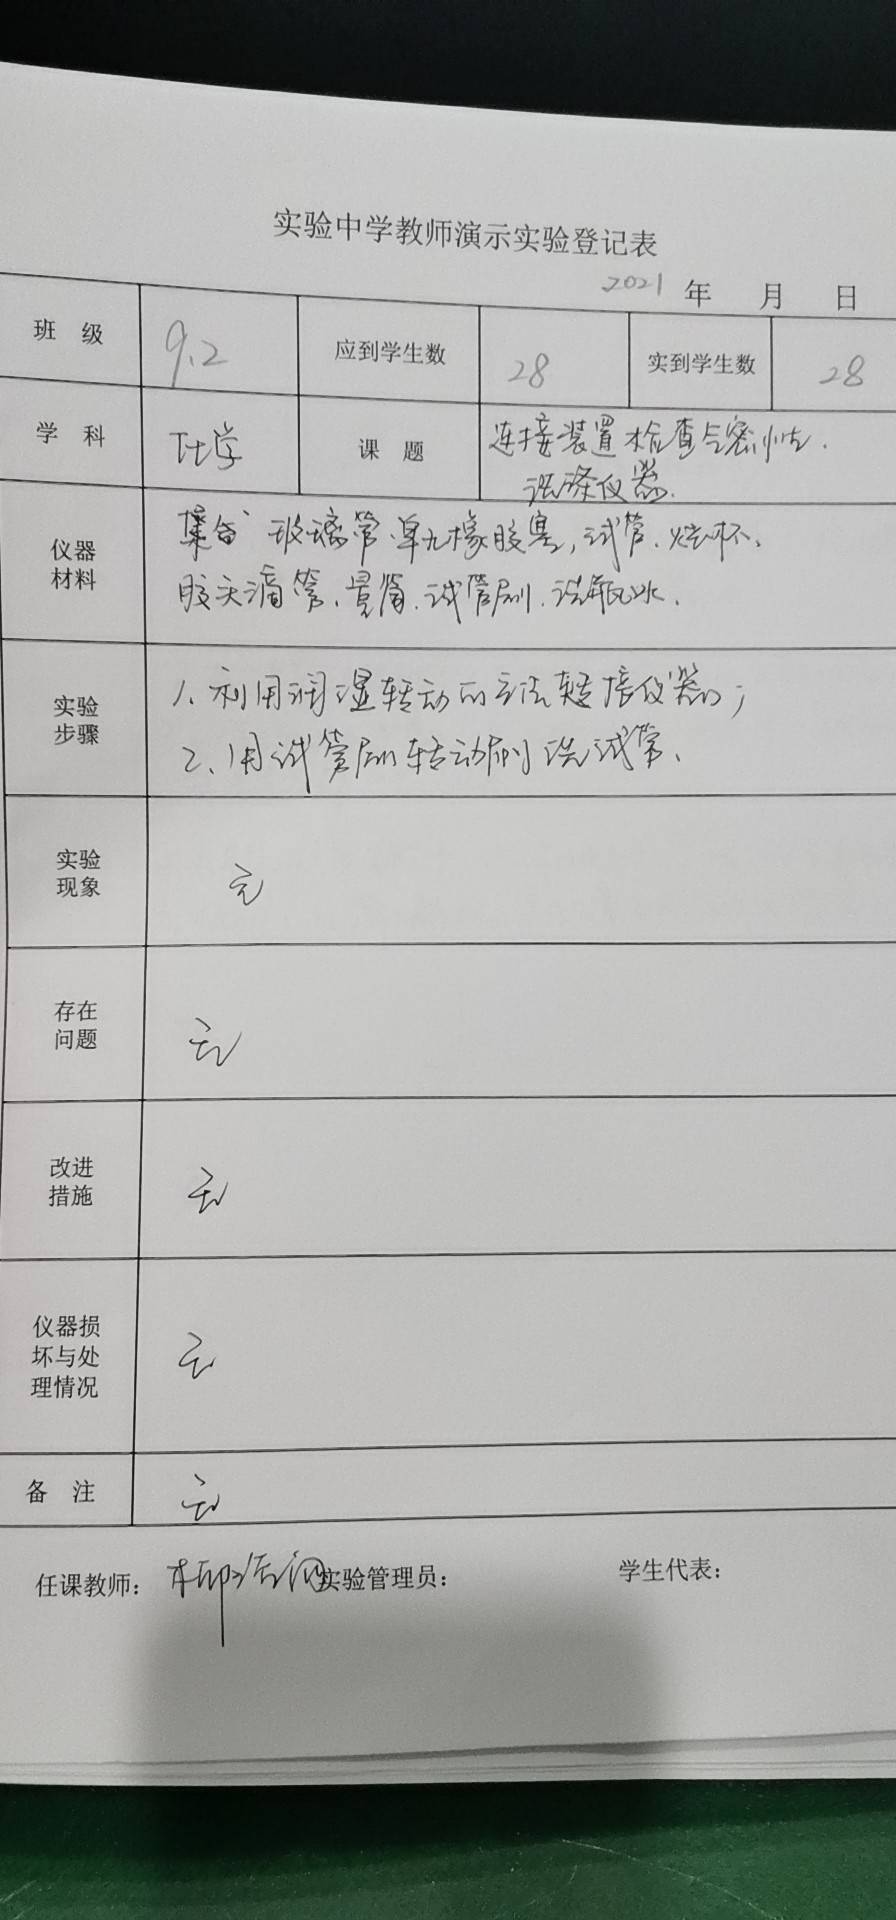 实验中学教师演示实验登记表
2021 年 月 日
班 级 9.2 应到学生数 28 实到学生数 28
学 科 化学 课 题 连接装置检查气密性.
洗涤仪器.
仪器 玻璃管.单孔橡胶塞,试管.烧杯、
材料 胶头滴管、量筒.试管刷.洗瓶水.
实验 1、利用润湿转动的方法连接仪器;
步骤 2、用试管刷转动刷洗试管、
实验
现象 无
存在
问题 无
改进
措施 无
仪器损
坏与处 无
理情况
备 注 无
任课教师: 实验管理员: 学生代表: